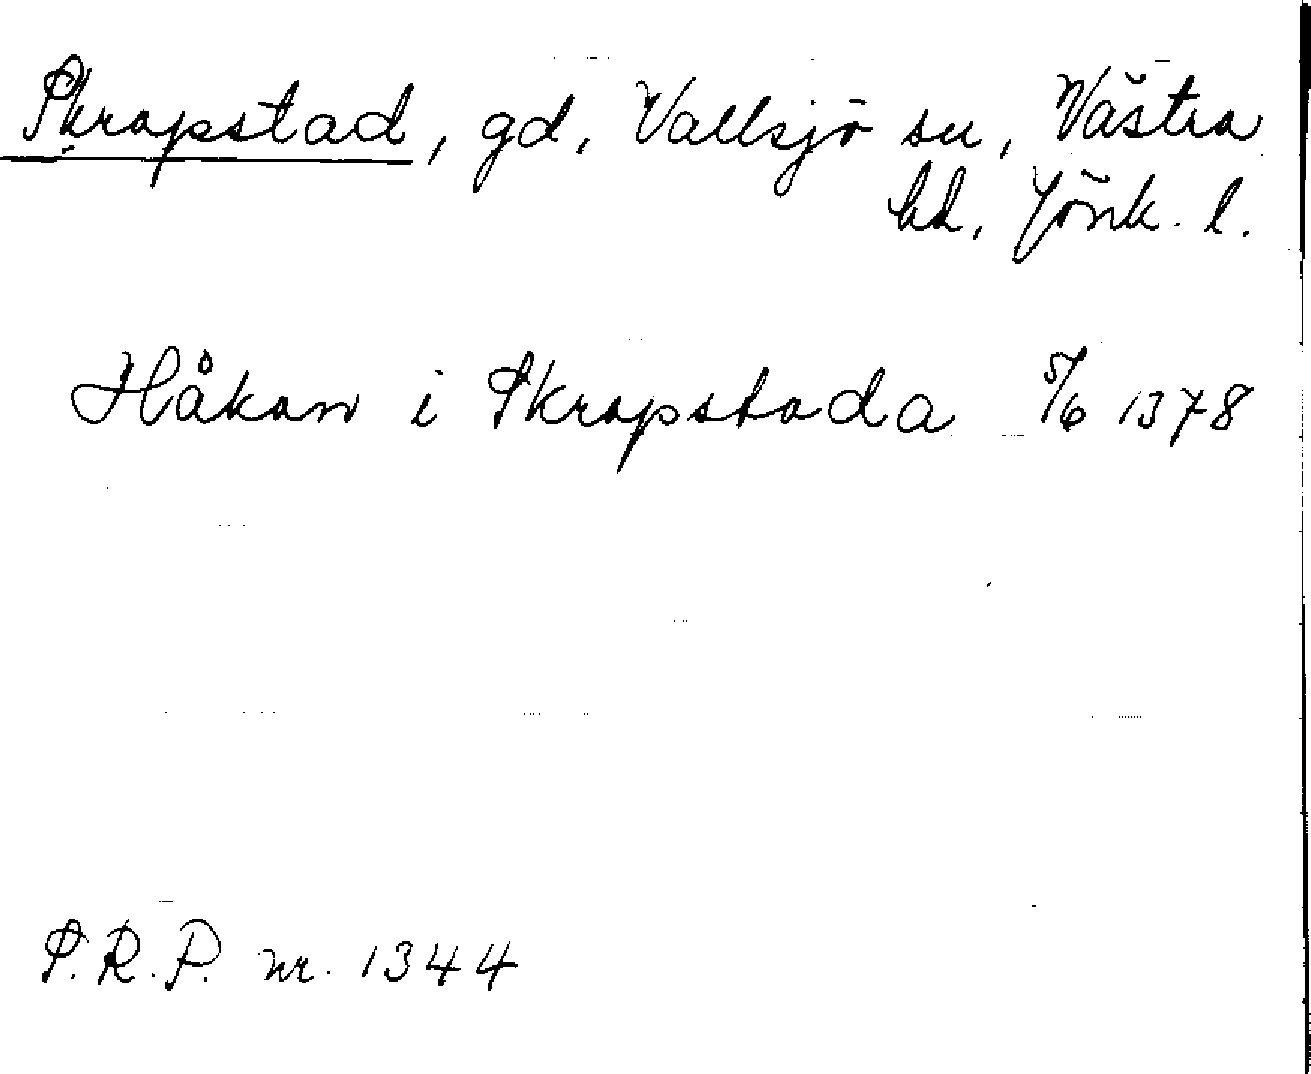 Skrapstad, gd, Vallsjö sn, Västra
hd, Jönk. l.
Håkan i Skrapstada 5/6 1378
S.R.P. nr. 1344